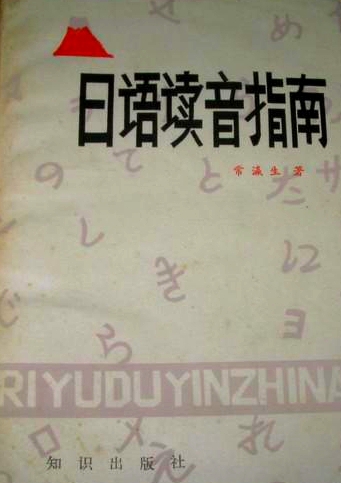 日语读音指南
常瀛生 著
RIYUDUYINZHINA
知识出版社